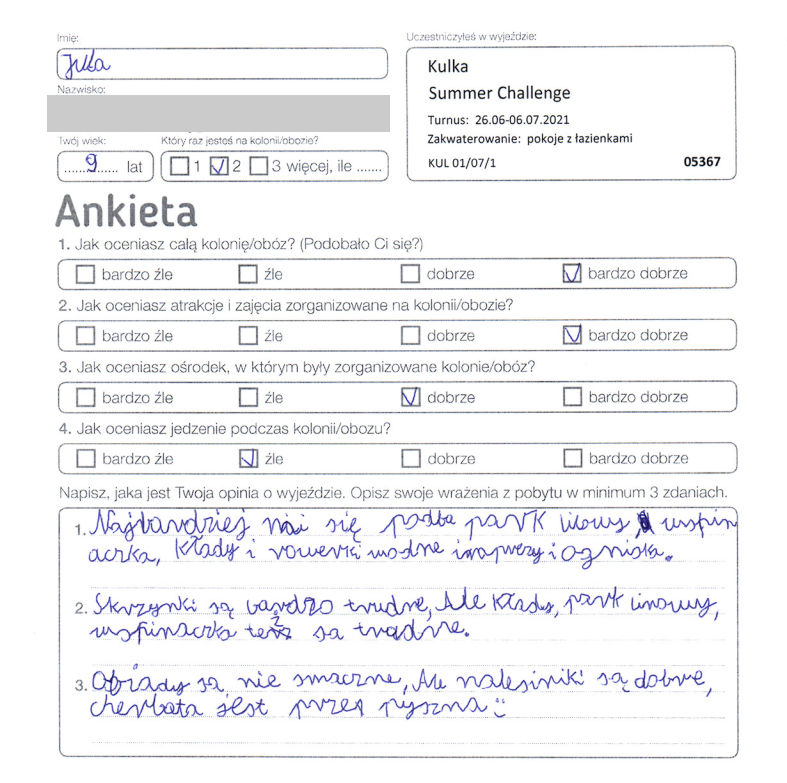 Imię:
Julka
Nazwisko:
Twój wiek:
Który raz jesteś na kolonii/obozie?
......9...... lat
1 2 3 więcej, ile .......
Uczestniczyłeś w wyjeździe:
Kulka
Summer Challenge
Turnus: 26.06-06.07.2021
Zakwaterowanie: pokoje z łazienkami
KUL 01/07/1 05367
Ankieta
1. Jak oceniasz całą kolonię/obóz? (Podobało Ci się?)
bardzo źle źle dobrze bardzo dobrze
2. Jak oceniasz atrakcje i zajęcia zorganizowane na kolonii/obozie?
bardzo źle źle dobrze bardzo dobrze
3. Jak oceniasz ośrodek, w którym były zorganizowane kolonie/obóz?
bardzo źle źle dobrze bardzo dobrze
4. Jak oceniasz jedzenie podczas kolonii/obozu?
bardzo źle źle dobrze bardzo dobrze
Napisz, jaka jest Twoja opinia o wyjeździe. Opisz swoje wrażenia z pobytu w minimum 3 zdaniach.
1. Najbardziej się podba park liowy, wspin
aczka, kłady i rowerki wodne i ogniska.
2. Skrzynki są bardzo trudne, Ale kłady, park linowy,
wspinaczka też są trudne.
3. Obiady są nie smaczne, Ale nalesiniki są dobre,
cherbata jest przep pyszna